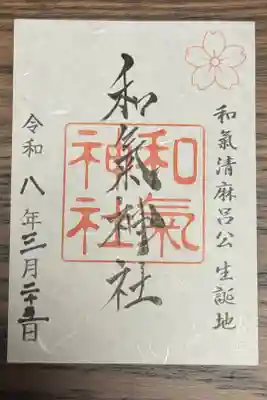 和氣清麻呂公 生誕地
和氣神社
和氣
神社
令和八年三月二十五日